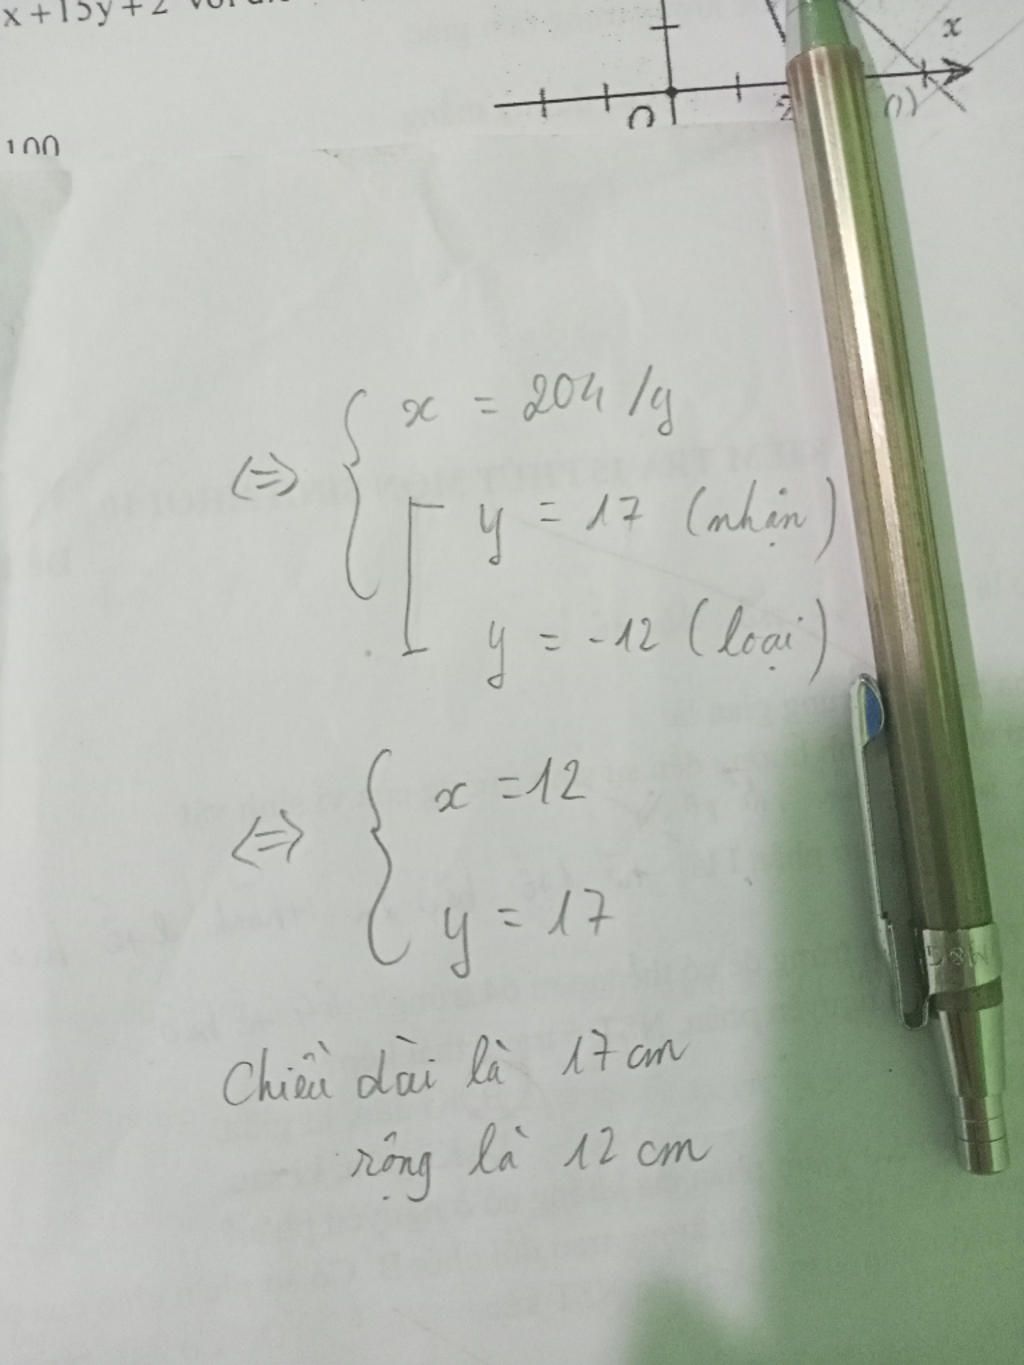 x+15y+2
100
x
O
2
⇔ { x = 204 /y
[ y = 17 (nhận)
y = -12 (loại)
⇔ { x = 12
y = 17
Chiều dài là 17 cm
rộng là 12 cm
M&G